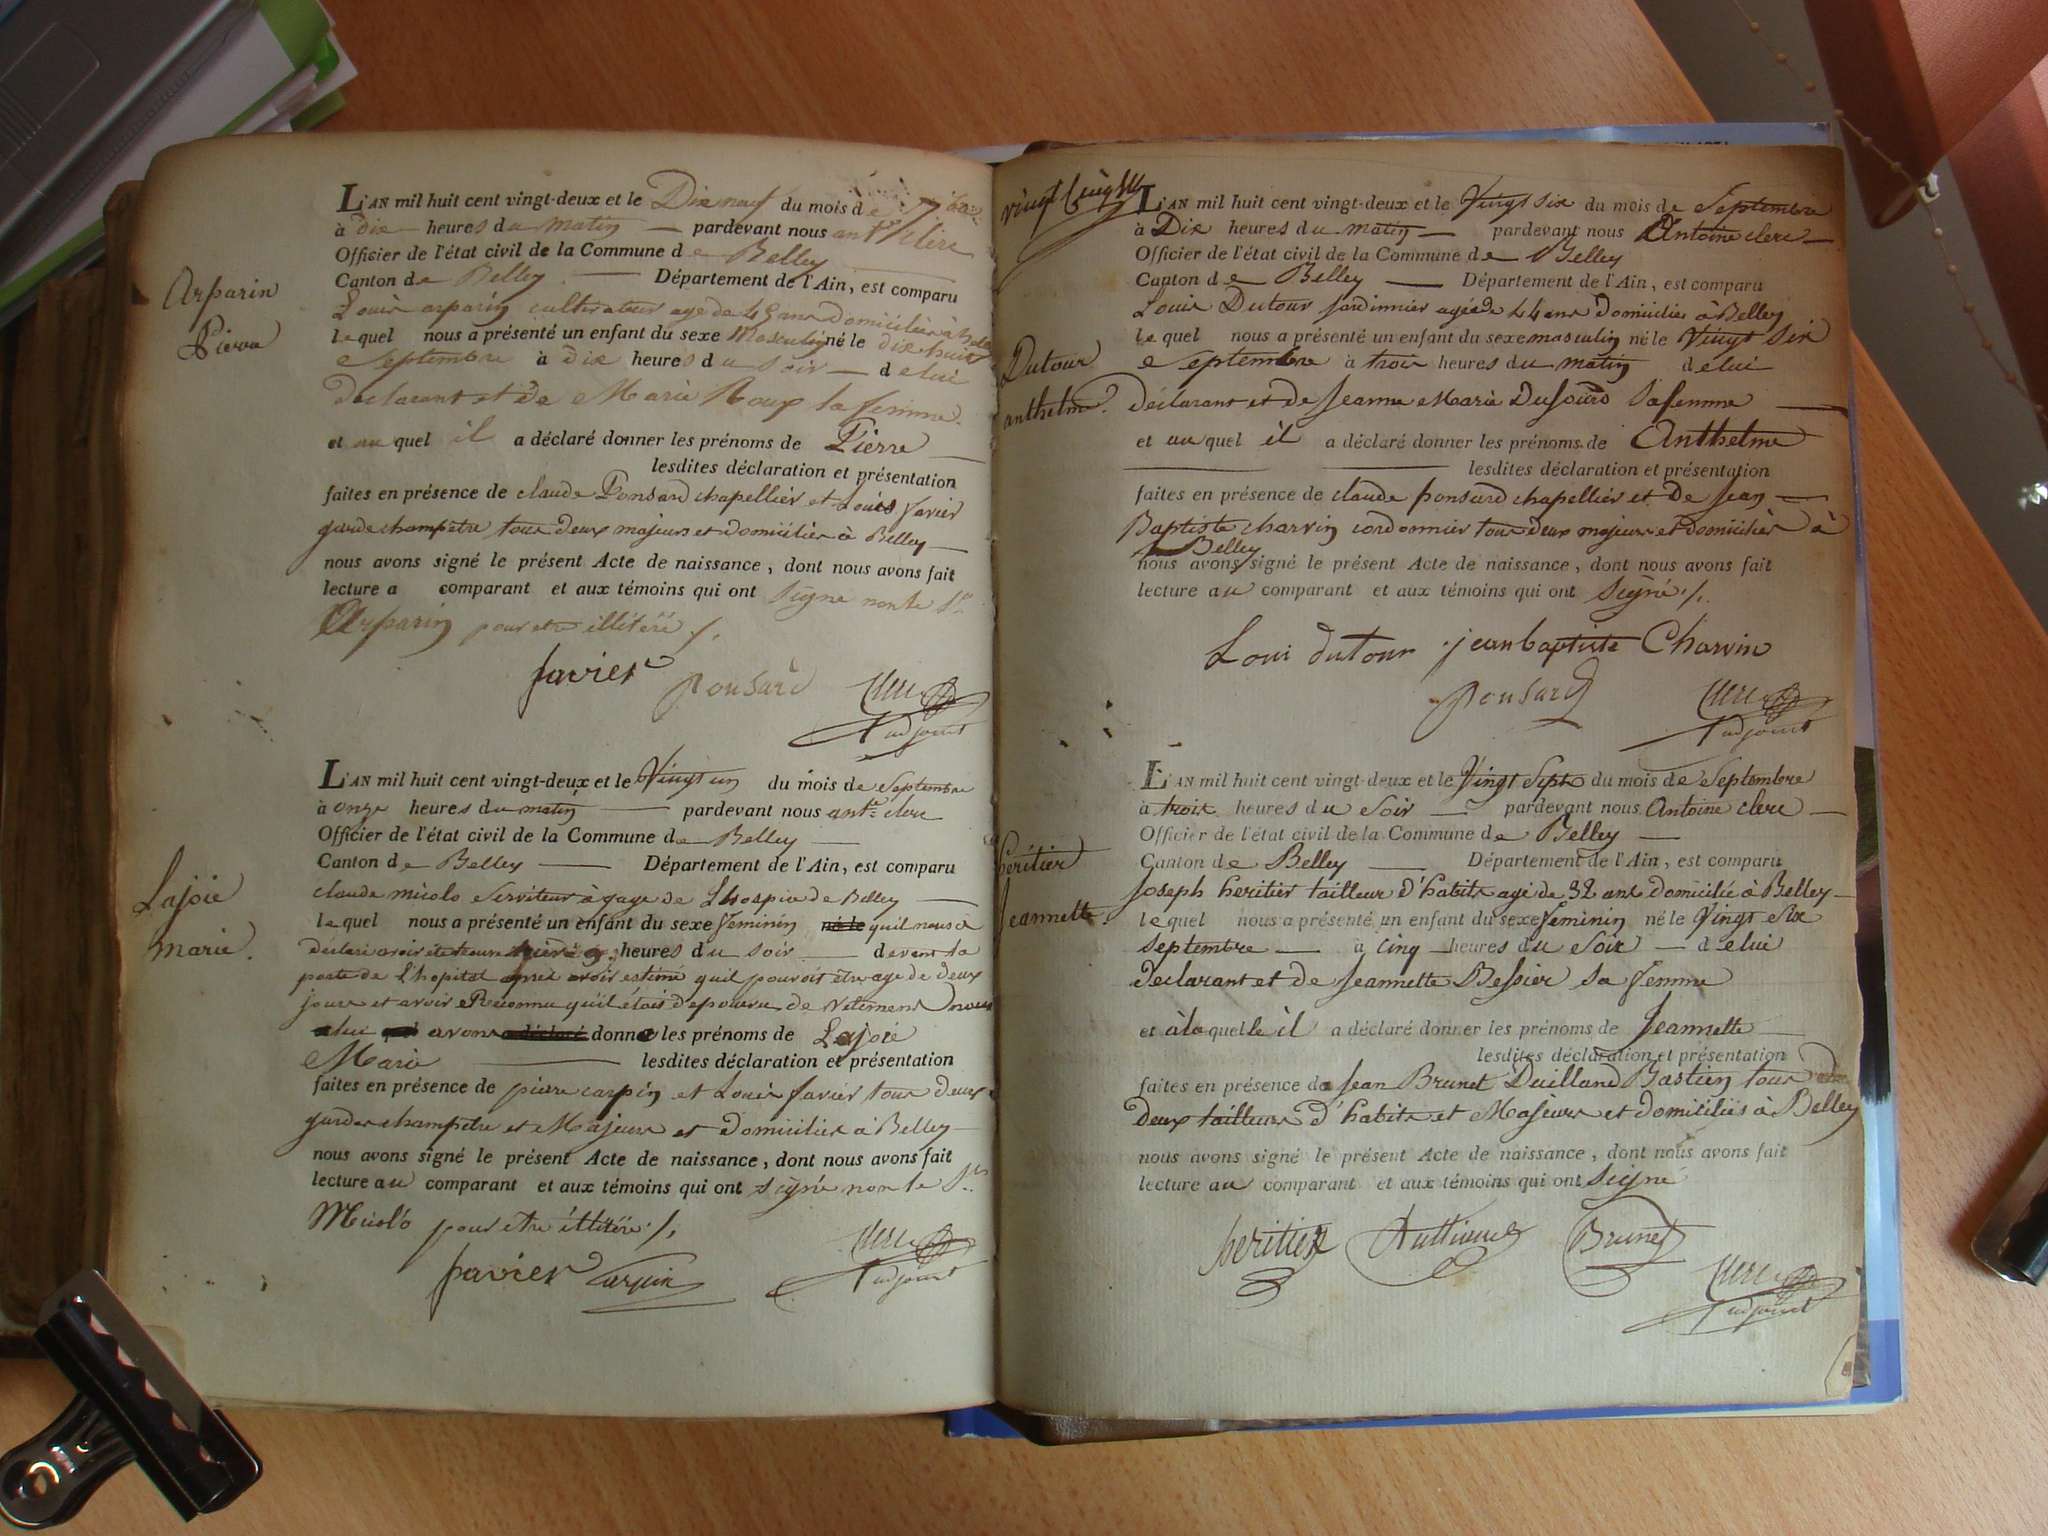 L'AN mil huit cent vingt-deux et le Dix neuf du mois de 7bre
à dix heures du matin pardevant nous ant.e clerc
Officier de l'état civil de la Commune de Belley
Canton de Belley Département de l'Ain, est comparu
Arparin
Pierre
Louis arparin cultivateur agé de 45 ans domicilié à Belley
le quel nous a présenté un enfant du sexe Masculin né le dix huit
Septembre à dix heures du soir de lui
déclarant et de Marie Roux sa femme
et au quel il a déclaré donner les prénoms de Pierre
lesdites déclaration et présentation
faites en présence de claude Ponsard chapellier et Louis favier
garde champêtre tous deux majeurs et domiciliés à Belley
nous avons signé le présent Acte de naissance, dont nous avons fait
lecture a comparant et aux témoins qui ont signé non le Sr.
Arparin pour etre illitéré ./.
favier Ponsard Clerc
adjoint
L'AN mil huit cent vingt-deux et le Vingt un du mois de Septembre
à onze heures du matin pardevant nous ant.e clerc
Officier de l'état civil de la Commune de Belley
Canton de Belley Département de l'Ain, est comparu
Lajoie
marie.
claude micolo Serviteur à gage de L'hospice de Belley
le quel nous a présenté un enfant du sexe féminin né le quil nous a
déclaré avoir été heures du soir devant la
porte de L'hopital après avoir estimé quil pouvoit être agé de deux
jours et avoir Reconnu qu'il étois dépourvu de vêtement nous
avons a déclaré donné les prénoms de Lajoie
Marie lesdites déclaration et présentation
faites en présence de pierre carpin et Louis favier tous deux
gardes champêtre et Majeurs et domiciliés à Belley
nous avons signé le présent Acte de naissance, dont nous avons fait
lecture au comparant et aux témoins qui ont signé non le Sr.
Micolo pour etre illitéré ./.
favier Carpin Clerc
adjoint
vingt cinq
L'AN mil huit cent vingt-deux et le Vingt six du mois de Septembre
à Dix heures du matin pardevant nous Antoine clerc
Officier de l'état civil de la Commune de Belley
Canton de Belley Département de l'Ain, est comparu
Louis Dutour jardinnier agé de 44 ans domicilié à Belley
le quel nous a présenté un enfant du sexe masculin né le Vingt six
Dutour
anthelme.
Septembre à trois heures du matin de lui
déclarant et de Jeanne Marie Dufourd sa femme
et au quel il a déclaré donner les prénoms de Anthelme
lesdites déclaration et présentation
faites en présence de claude ponsard chapellier et de Jean
Baptiste charvin cordonnier tous deux majeurs et domiciliés à
Belley
nous avons signé le présent Acte de naissance, dont nous avons fait
lecture au comparant et aux témoins qui ont signé ./.
Loui dutour jean baptiste Charvin
Ponsard Clerc
adjoint
L'AN mil huit cent vingt-deux et le Vingt Sept du mois de Septembre
à trois heures du soir pardevant nous Antoine clerc
Officier de l'état civil de la Commune de Belley
Canton de Belley Département de l'Ain, est comparu
héritier
Jeannette.
Joseph heritier tailleur d'habits agé de 32 ans domicilié à Belley
le quel nous a présenté un enfant du sexe féminin né le Vingt Six
septembre à cinq heures du soir de lui
déclarant et de Jeannette Bessier sa femme
et à la quelle il a déclaré donner les prénoms de Jeannette
lesdites déclaration et présentation
faites en présence de Jean Brunet Bastien tous
deux tailleurs d'habits et Majeurs et domiciliés à Belley
nous avons signé le présent Acte de naissance, dont nous avons fait
lecture au comparant et aux témoins qui ont signé
heritier Brunet
Clerc
adjoint